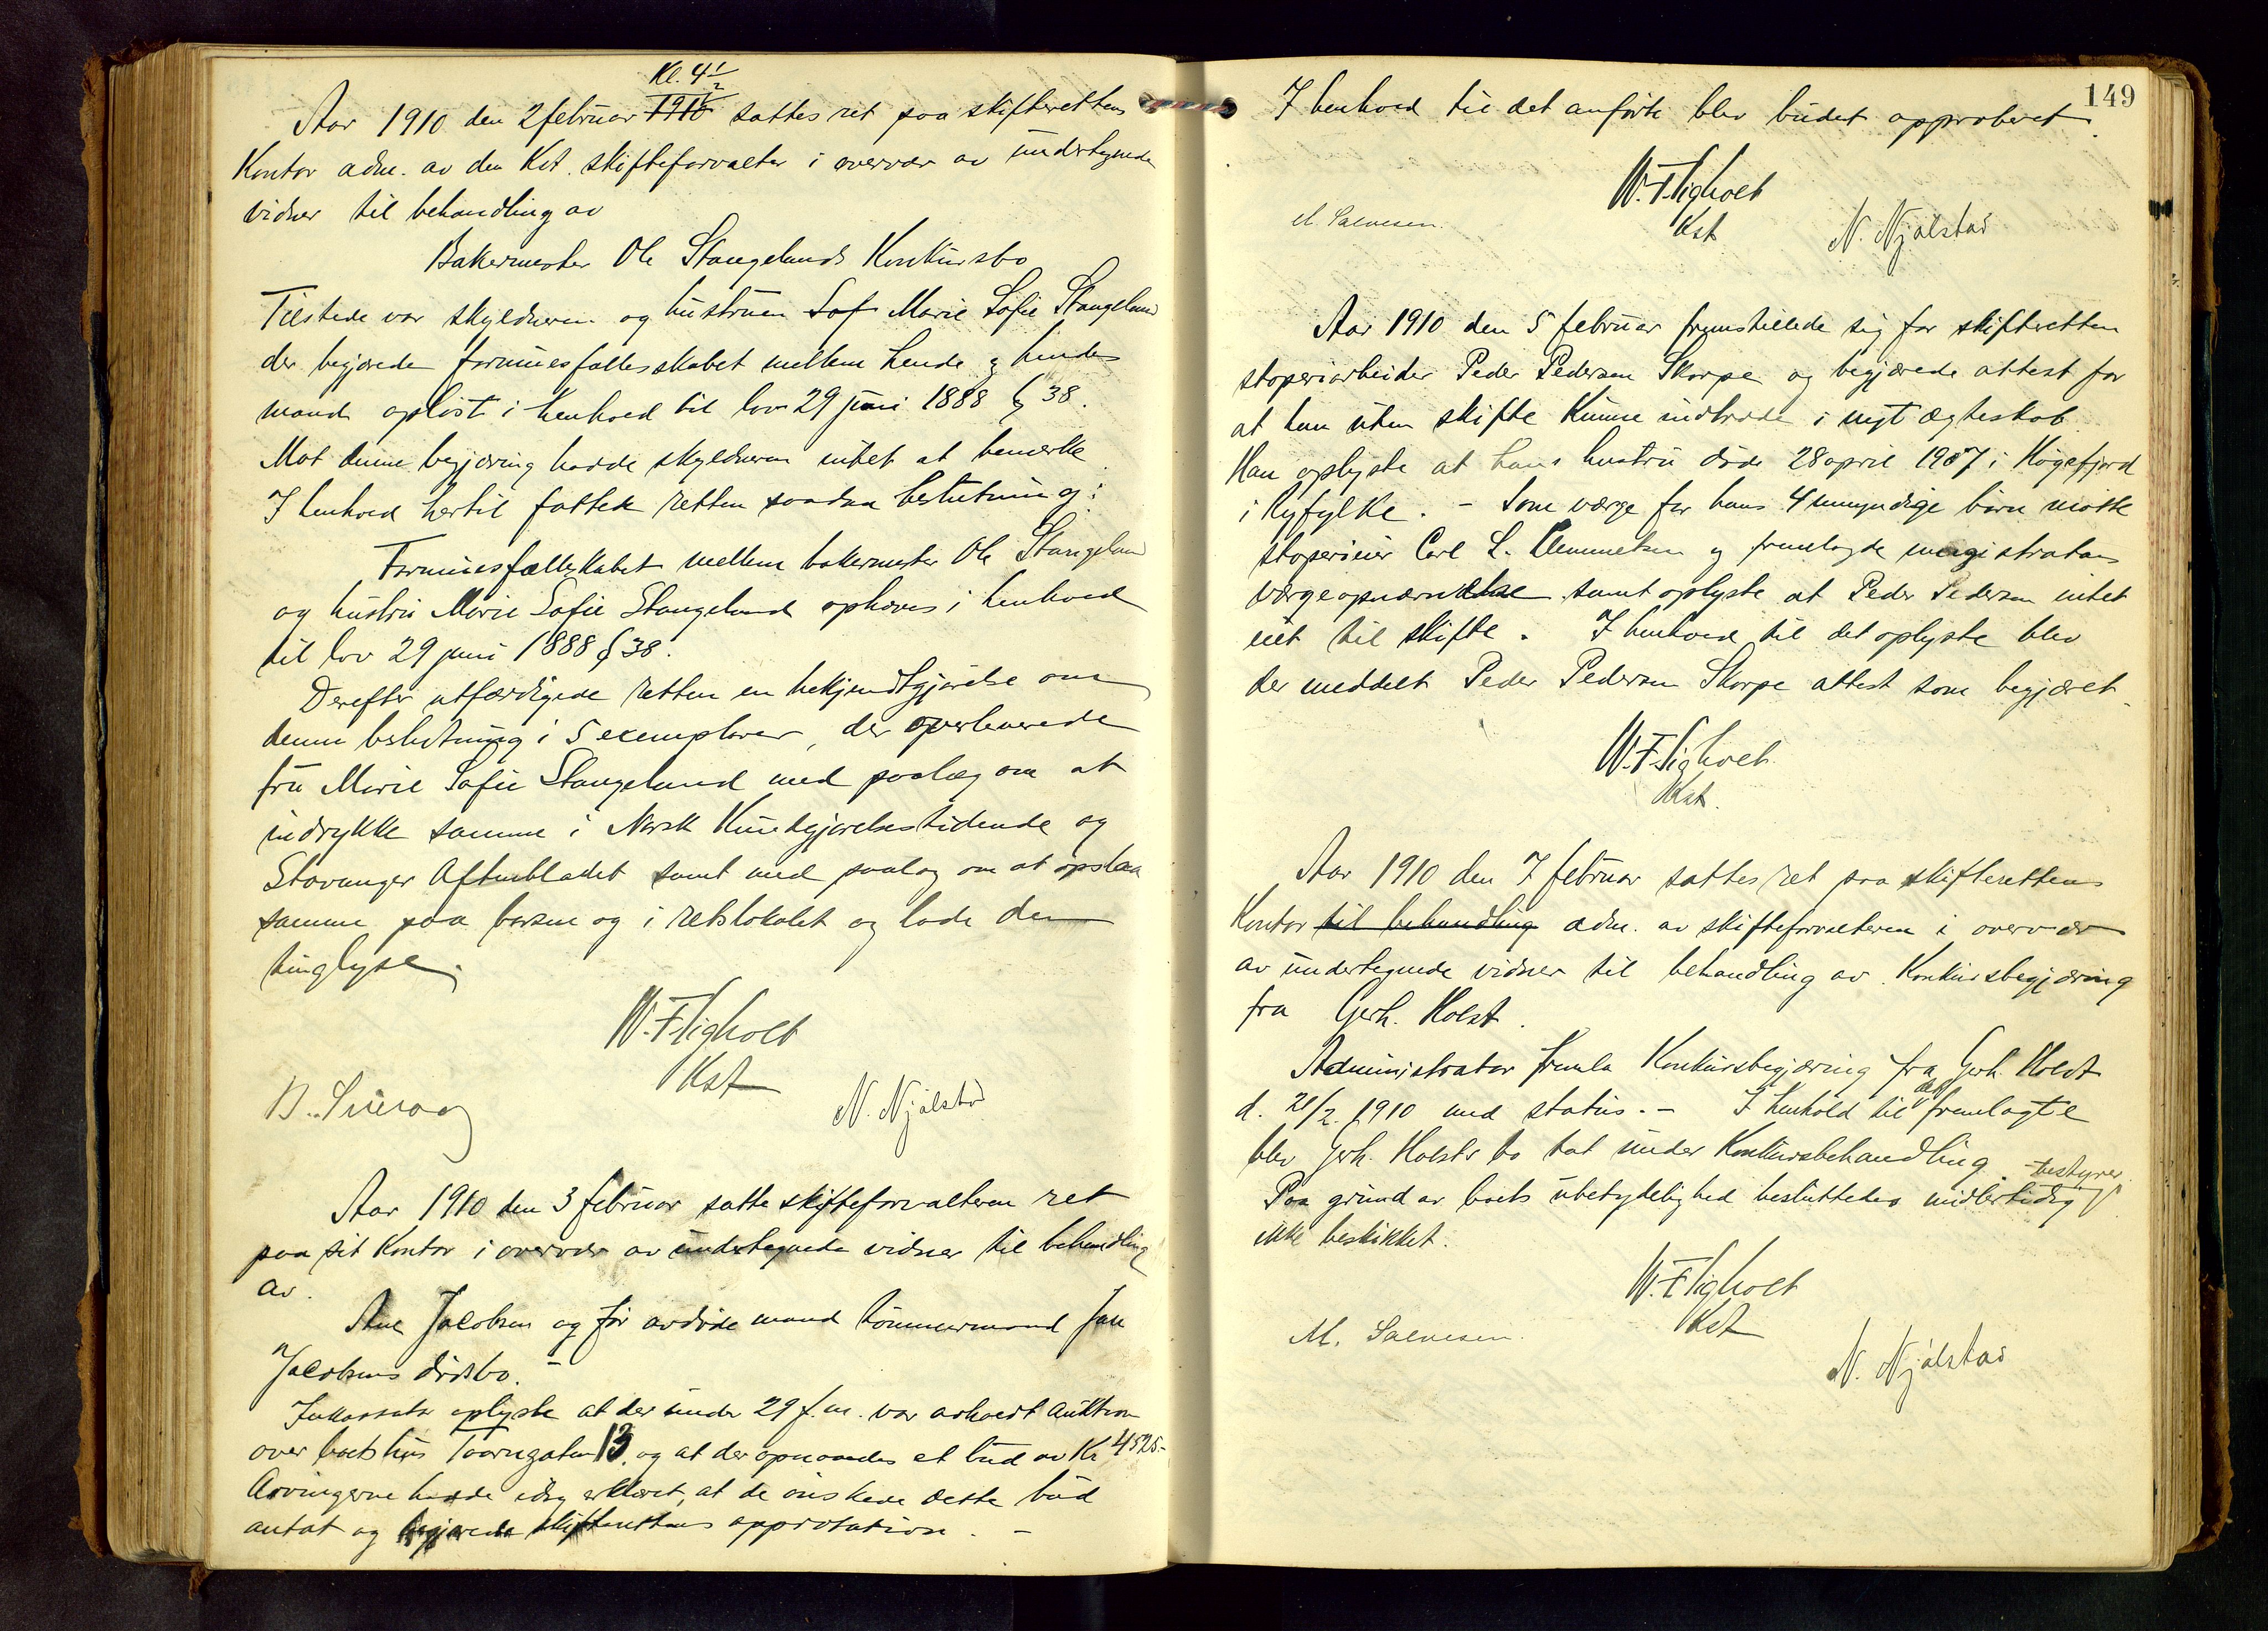 Kl. 4 1/2
Aar 1910 den 2 februar 1910 sattes ret paa skifterettens
Kontor adm. av den Kst. skifteforvalter i overvær av undertegnede
vidner til behandling av
Bakermester Ole Stangelands Konkursbo
Tilstede var skyldneren og hustruen Sof Marie Sofie Stangeland
der begjærede formuesfællesskabet mellem hende og hendes
mand opløst i henhold til lov 29 juni 1888 § 38.
Mot denne begjæring hadde skyldneren intet at bemerke
I henhold hertil fattet retten saadan beslutning:
Formuesfælleskabet mellem bakermester Ole Stangeland
og hustru Marie Sofie Stangeland ophæves i henhold
til lov 29 juni 1888 § 38.
Derefter utfærdigede retten en bekjendtgjørelse om
denne beslutning i 5 exemplarer, der overleverede
fru Marie Sofie Stangeland med paalæg om at
indrykke samme i Norsk Kundgjørelsestidende og
Stavanger Aftenbladet samt med paalæg om at opslaa
samme paa børsen og i retslokalet og lade den
tinglyse.
W. F. Sigholt
Kst
N. Njålstad
Aar 1910 den 3 februar satte skifteforvalteren ret
paa sit Kontor i overvær av undertegnede vidner til behandling
av.
Ane Jacobsen og før avdøde mand tømmermand Jan
Jacobsens dødsbo. -
Inkassator oplyste at der under 29 f.m. var avholdt auktion
over boets hus Taarngaten 13. og at der opnaaedes et bud av Kr 4525.-
Arvingerne hadde idag erklæret, at de ønskede dette bud
antat og begjærede skifterettens approbation. -
149
I henhold til det anførte blev budet approberet.
W. F. Sigholt
Kst
M. Salvesen.
N. Njålstad
Aar 1910 den 5 februar fremstillede sig for skifteretten
støperiarbeider Peder Pedersen Skorpe og begjærede attest for
at han uten skifte kunne indtræde i nyt ægteskab.
Han oplyste at hans hustru døde 28 april 1907 i Høgsfjord
i Ryfylke. - Som værge for hans 4 umyndige børn møtte
støperieier Carl L. Clemmetsen og fremlagde magistratens
værgeopnævnelse samt oplyste at Peder Pedersen intet
eiet til skifte. I henhold til det oplyste blev
der meddelt Peder Pedersen Skorpe attest som begjæret.
W. F. Sigholt
Kst.
Aar 1910 den 7 februar sattes ret paa skifterettens
Kontor til behandling adm. av skifteforvalteren i overvær
av undertegnede vidner til behandling av Konkursbegjæring
fra Gerh. Holst.
Administrator fremla Konkursbegjæring fra Gerh. Holst
d. 2/2. 1910 med status. - I henhold til det fremlagte
blev Gerh. Holsts bo tat under Konkursbehandling.
Paa grund av boets ubetydelighed besluttedes midlertidig bestyrer
ikke beskikket.
W. F. Sigholt
Kst
M. Salvesen.
N. Njålstad